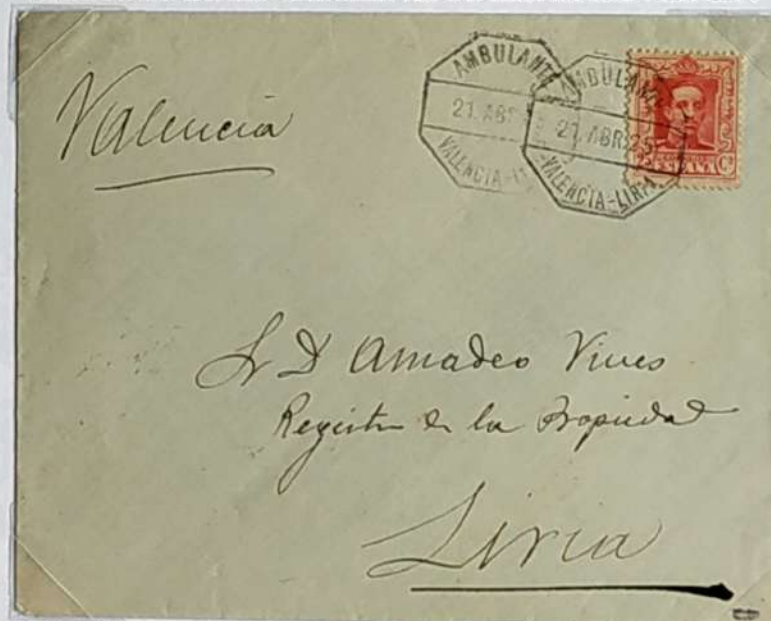 Valencia
AMBULANTE
21 ABR
VALENCIA-
AMBULAN
21 ABR 25
VALENCIA-LIRIA
ESPAÑA
Sr D Amadeo Vives
Registro de la Propiedad
Liria